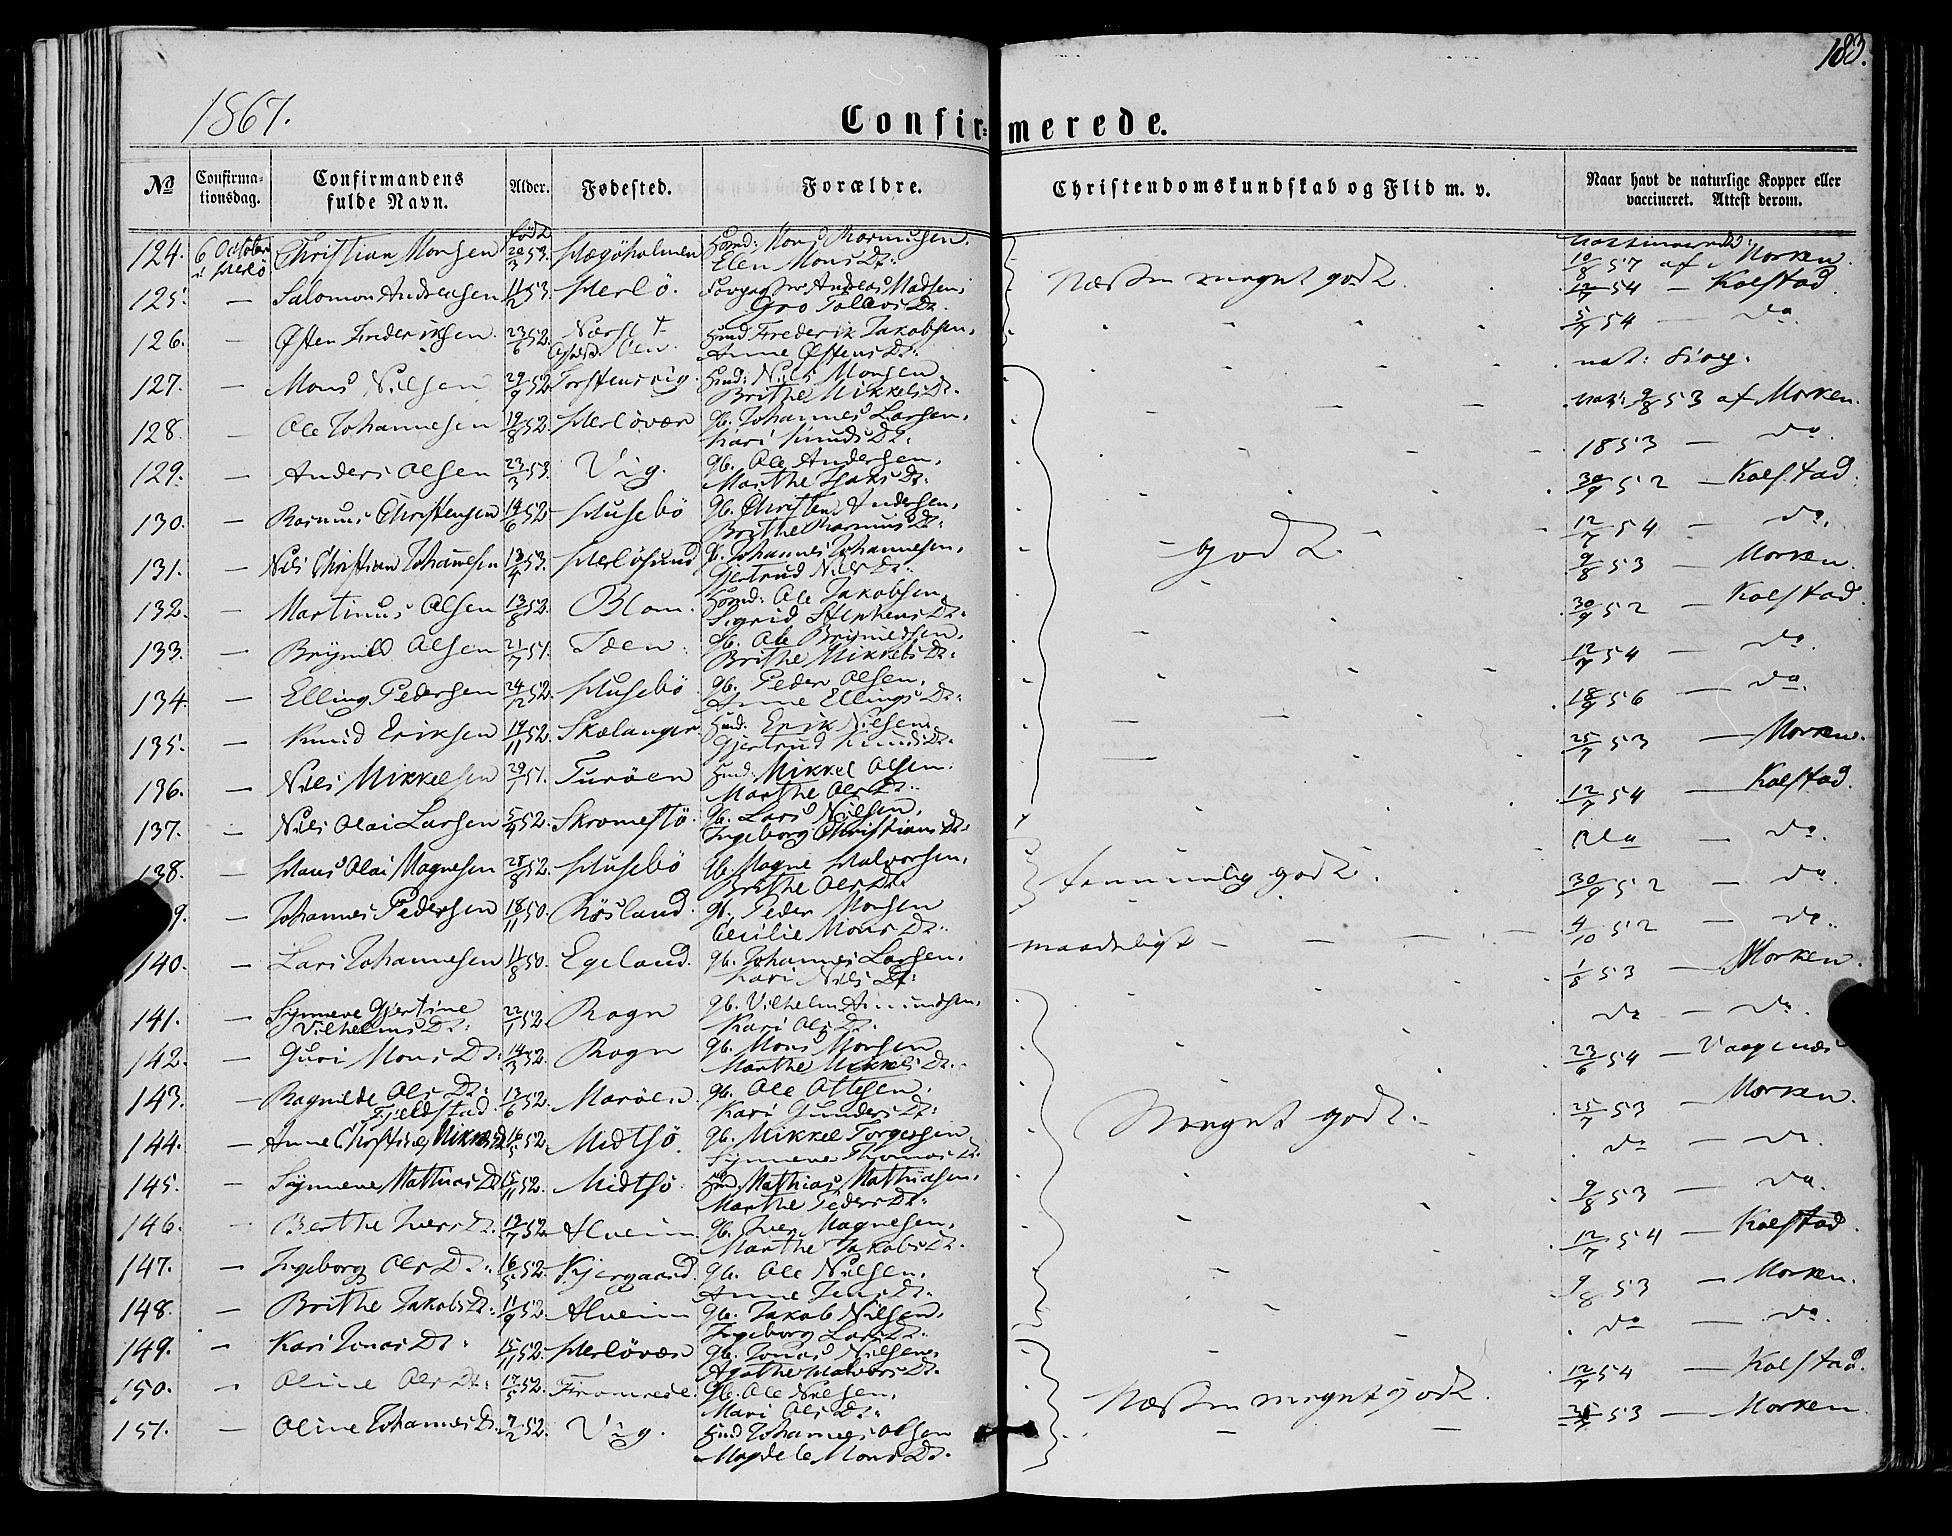 183.
1867.
Confirmerede.
No
Confirmationsdag.
Confirmandens fulde Navn.
Alder.
Fødested.
Forældre.
Christendomskundskab og Flid m. v.
Naar havt de naturlige Kopper eller vaccineret. Attest derom.
født
124. 6 October i Herlø Christian Monsen 20/3 53. Hægøholmen Huusmd: Mons Rasmusen. Elen Mons Dr: vaccineret: 10/8 57 af Morken.
125. — Salomon Andreasen 11/2 53. Herlö. Andreas Madsen, Gro Tollevs Dr. Næsten meget godt. 12/7 54 — Kolstad.
126. — Østen Frederiksen. 23/6 52. Huusmd Frederik Jakobsen, Anne Østens Dr: 5/7 54 — do.
127. — Mons Nilsen 29/9 52 Torstensvig. Huusmd: Nils Monsen Brithe Mikkels Dr. nat:
128. — Ole Johannesen 19/8 52. Herlövær gb. Johannes Larsen, Kari Knuds Dr: vac: 9/8 53 af Morken.
129. — Anders Olsen 23/3 53. Vig. gb. Ole Andersen, Marthe Dr: 1853 — do.
130. — Rasmus Christensen 14/6 52 Husebö gb. Christen Andersen, Brithe Rasmus Dr: 30/9 52 — Kolstad.
131. — Nils Christian Johannesen 13/4 53. Herlösund gb. Johannes Johannesen, Gjertrud Nils Dr: godt. 12/7 54 — do.
132. — Martinus Olsen 13/8 52. Blom. Huusmd: Ole Jakobsen, Sigrid Stephens Dr: 9/8 53 — Morken.
133. — Brynild Olsen 21/7 51. Toen. gb. Ole Brynildsen, Brithe Mikkels Dr: 30/9 52 — Kolstad.
134. — Elling Pedersen 24/12 52. Husebö gb. Peder Olsen, Anne Ellings Dr: 12/7 54 — do.
135. — Knud Eriksen 19/11 52. Skælanger. Huusmd: Erik Nilsen, Gjertrud Knuds Dr: 18/9 56 — do.
136. — Nils Mikkelsen 29/7 51. Turöen Huusmd: Mikkel Olsen, Marthe Ols Dr: 25/7 53 — Morken.
137. — Nils Olai Larsen 5/4 52. Skromestö. gb. Lars Nilsen, Ingeborg Christians Dr: 12/7 54 — Kolstad.
138. — Hans Olai Magnesen 25/8 52. Husebö gb. Magne Halvorsen, Brithe Ols Dr: temmelig godt. do — do.
9. — Johannes Pedersen 18/11 50. Rösland. gb. Peder Monsen Cecilie Mons Dr: 30/9 52 — do.
140. — Lars Johannesen 11/8 50. Egeland. gb. Johannes Larsen, Kari Nils Dr: maadeligt 4/10 52 — do.
141. — Synneve Gjertine Vilhelms Dr: 22/1 52. Rogn gb. Vilhelm Amundsen, Kari Ols Dr. 1/8 53 — Morken.
142. — Guri Mons Dr. 14/3 52. Rogn gb. Mons Monsen Marthe Mikkels Dr. do — do.
143. — Ragnilde Ols Dr: Fjeldstad. 13/6 52. Maröen gb. Ole Ottesen, Kari Gunders Dr: Meget godt. 23/6 54 — Vaagenæs
144. — Anne Christine Mikkels Dr 52. Midtsö. gb. Mikkel Torgersen Synneve Thomas Dr. 25/7 53 Morken.
145. — Synneve Mathias Dr 15/11 52. Midtsö. Huusmd. Mathias Mathiasen, Marthe Peders Dr: do — do.
146. — Berthe Ivers Dr. 13/7 52. Alveim. gb. Iver Magnesen, Marthe Jakobs Dr. 9/8 53 — do.
147. — Ingeborg Ols Dr: 16/5 52. Kjergaard. gb. Ole Nilsen, Anne Jens Dr: 12/7 54 — Kolstad.
148. — Brithe Jakobs Dr: 11/9 52. Alveim gb. Jakob Nilsen, Ingeborg Lars Dr. 9/8 53 — Morken.
149. — Kari Jonas Dr: 15/11 52. Herlövær gb. Jonas Nilsen, Agathe Halvors Dr. do — do.
150. — Oline Ols Dr: 17/5 52. Fromrede. gb. Ole Nilsen, Mari Ols Dr: Næsten meget godt. 12/7 54 — Kolstad.
151. — Oline Johannes Dr. 7/2 52. Vig. Huusmd Johannes Olsen Magdele Mons Dr. 25/7 53 — Morken.